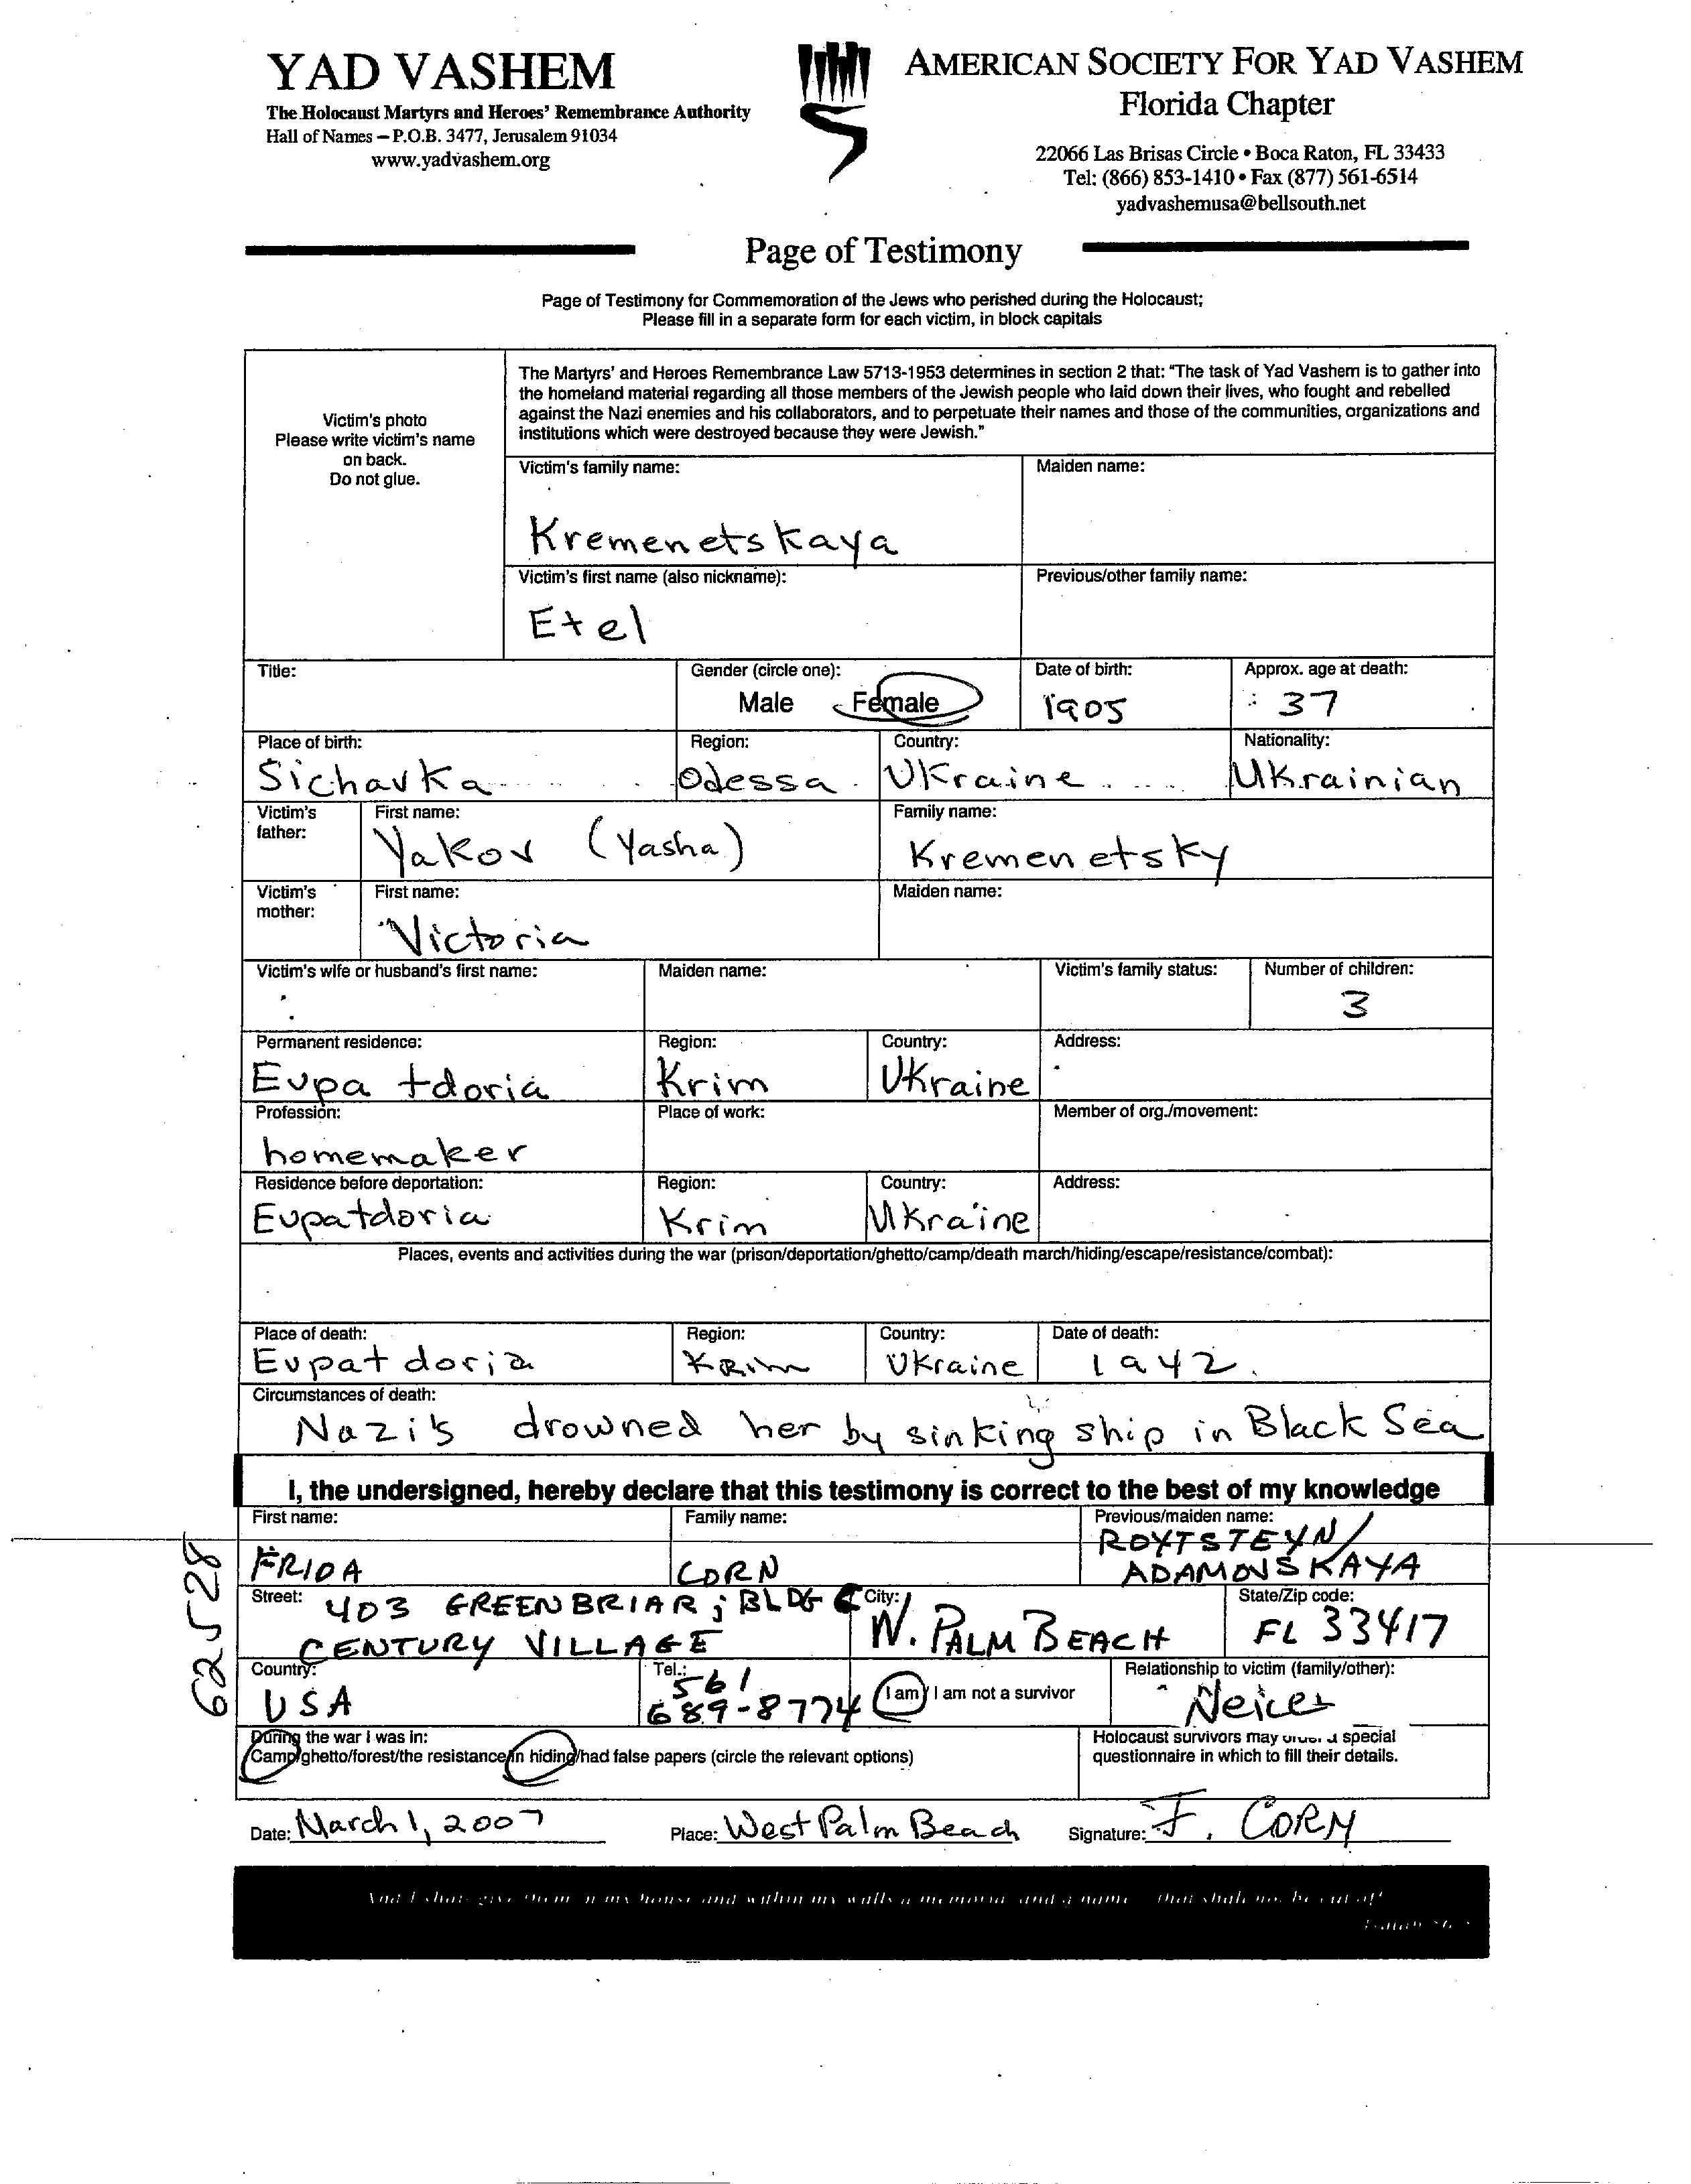 YAD VASHEM
The Holocaust Martyrs and Heroes' Remembrance Authority
Hall of Names – P.O.B. 3477, Jerusalem 91034
www.yadvashem.org
AMERICAN SOCIETY FOR YAD VASHEM
Florida Chapter
22066 Las Brisas Circle • Boca Raton, FL 33433
Tel: (866) 853-1410 • Fax (877) 561-6514
yadvashemusa@bellsouth.net
Page of Testimony
Page of Testimony for Commemoration of the Jews who perished during the Holocaust;
Please fill in a separate form for each victim, in block capitals
Victim's photo
Please write victim's name
on back.
Do not glue.
The Martyrs' and Heroes Remembrance Law 5713-1953 determines in section 2 that: "The task of Yad Vashem is to gather into
the homeland material regarding all those members of the Jewish people who laid down their lives, who fought and rebelled
against the Nazi enemies and his collaborators, and to perpetuate their names and those of the communities, organizations and
institutions which were destroyed because they were Jewish."
Victim's family name: Maiden name:
Kremenetskaya
Victim's first name (also nickname): Previous/other family name:
Etel
Title: Gender (circle one): Date of birth: Approx. age at death:
Male Female 1905 37
Place of birth: Region: Country: Nationality:
Sichavka Odessa Ukraine Ukrainian
Victim's father: First name: Family name:
Yakov (Yasha) Kremenetsky
Victim's mother: First name: Maiden name:
Victoria
Victim's wife or husband's first name: Maiden name: Victim's family status: Number of children:
3
Permanent residence: Region: Country: Address:
Evpa tdoria Krim Ukraine
Profession: Place of work: Member of org./movement:
homemaker
Residence before deportation: Region: Country: Address:
Evpatdoria Krim Ukraine
Places, events and activities during the war (prison/deportation/ghetto/camp/death march/hiding/escape/resistance/combat):
Place of death: Region: Country: Date of death:
Evpatdoria KRim Ukraine 1942.
Circumstances of death:
Nazi's drowned her by sinking ship in Black Sea
I, the undersigned, hereby declare that this testimony is correct to the best of my knowledge
First name: Family name: Previous/maiden name:
ROYTSTEYN/
FRIDA CORN ADAMOVSKAYA
Street: City: State/Zip code:
403 GREENBRIAR; BLDG C W. PALM BEACH FL 33417
CENTURY VILLAGE
Country: Tel.: Relationship to victim (family/other):
USA 561 689-8774 I am / I am not a survivor Neice
During the war I was in:
Camp/ghetto/forest/the resistance/in hiding/had false papers (circle the relevant options)
Holocaust survivors may a special
questionnaire in which to fill their details.
Date: March 1, 2007 Place: West Palm Beach Signature: F. CORN
And I shall give them in my house and within my walls a memorial and a name that shall not be cut off
Isaiah 56
625528